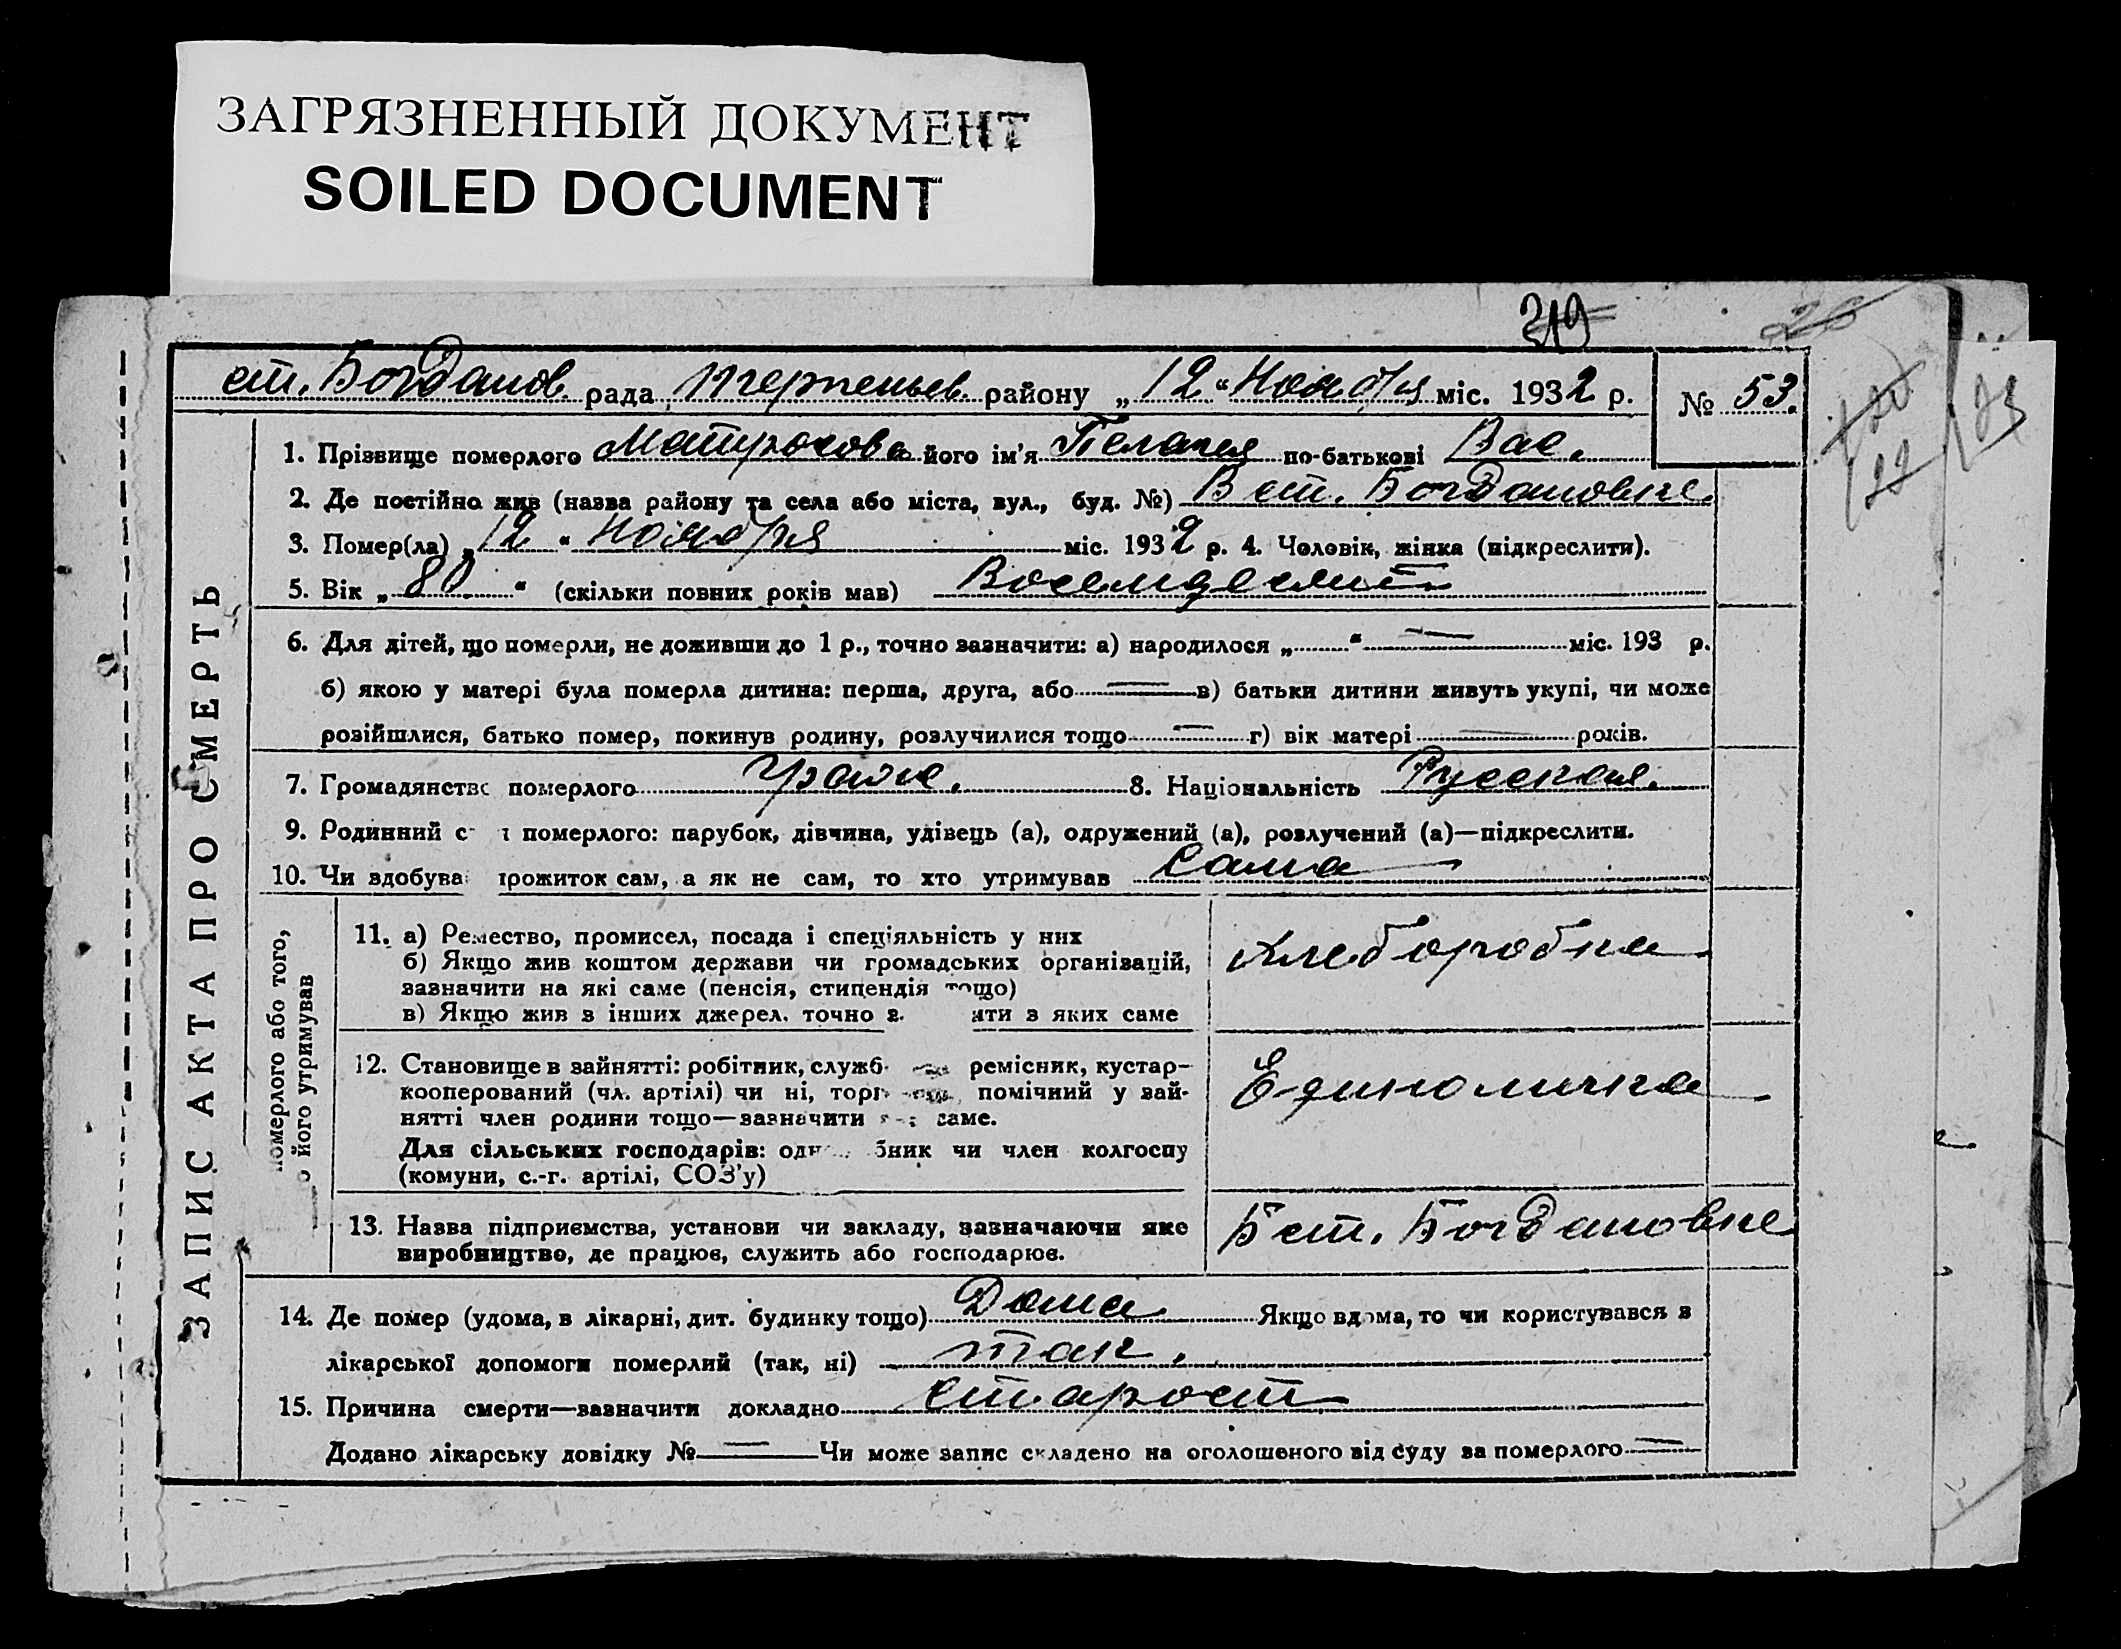 ЗАГРЯЗНЕННЫЙ ДОКУМЕНТ
SOILED DOCUMENT
319
26
ст. Богданов. рада районy „12“ Ноября міс. 1932 р. № 53.
ЗАПИС АКТА ПРО СМЕРТЬ
1. Прізвище померлого його ім'я Пелагея по-батькові Вас.
2. Де постійно жив (назва району та села або міста, вул., буд. №) В ст. Богдановке
3. Помер(ла) „12“ Ноября міс. 1932 р. 4. Чоловік, жінка (підкреслити).
5. Вік „80“ (скільки повних років мав) Восемдесит
6. Для дітей, що померли, не доживши до 1 р., точно зазначити: а) народилося „ “ — міс. 193 р.
б) якою у матері була померла дитина: перша, друга, або — в) батьки дитини живуть укупі, чи може
розійшлися, батько помер, покинув родину, розлучилися тощо — г) вік матері — років.
7. Громадянство померлого 8. Національність Русская.
9. Родинний с і померлого: парубок, дівчина, удівець (а), одружений (а), розлучений (а)—підкреслити.
10. Чи здобува прожиток сам, а як не сам, то хто утримував Сама
померлого або того,
о його утримував
11. а) Ремество, промисел, посада і спеціяльність у них
б) Якщо жив коштом держави чи громадських організацій,
зазначити на які саме (пенсія, стипендія тощо)
в) Якщо жив з інших джерел, точно з ати з яких саме
Хлеборобка
12. Становище в зайнятті: робітник, служб ремісник, кустар-
кооперований (чл. артілі) чи ні, торг помічний у зай-
нятті член родини тощо—зазначити саме.
Для сільських господарів: одн бник чи член колгоспу
(комуни, с.-г. артілі, СОЗ'у)
Единоличка
13. Назва підприємства, установи чи закладу, зазначаючи яке
виробництво, де працює, служить або господарює.
В ст. Богдановке
14. Де помер (удома, в лікарні, дит. будинку тощо) Дома Якщо вдома, то чи користувався з
лікарської допомоги померлий (так, ні) так.
15. Причина смерти—зазначити докладно старост
Додано лікарську довідку № — Чи може запис складено на оголошеного від суду за померлого —